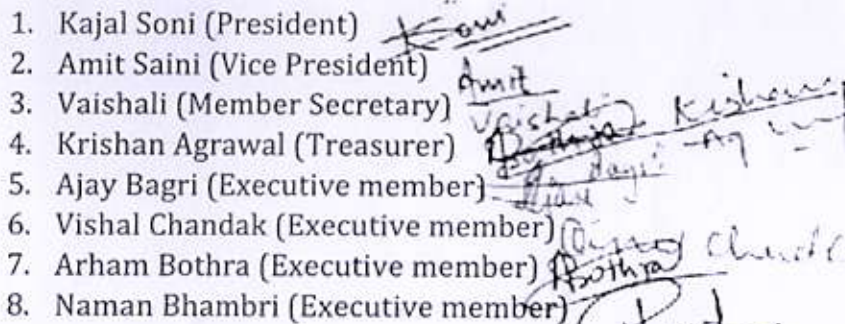 1. Kajal Soni (President) Soni
2. Amit Saini (Vice President) Amit
3. Vaishali (Member Secretary) Vaishali
4. Krishan Agrawal (Treasurer) Kishan Ag
5. Ajay Bagri (Executive member) Bagri
6. Vishal Chandak (Executive member)
7. Arham Bothra (Executive member) Bothra
8. Naman Bhambri (Executive member)